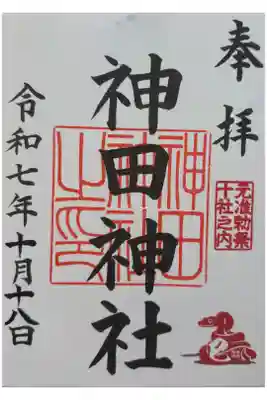 奉拝
元准勅祭
十社之内
神田神社
神田
神社
之印
令和七年十月十八日